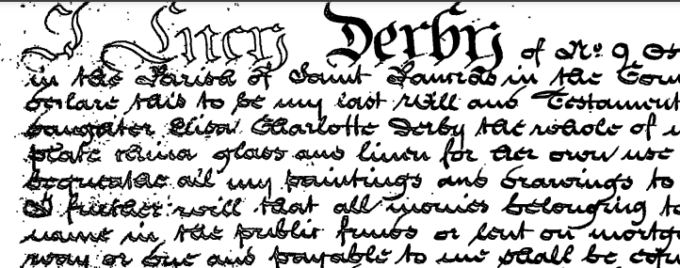 I Lucy Derby of No. 9
in the Parish of Saint Pancras in the
declare this to be my last Will and Testament
daughter Eliza Charlotte Derby the whole of
plate china glass and linen for her own use
bequeathe all my paintings and drawings to
I further will that all monies belonging to
name in the public funds or lent on
way or due and payable to me shall be